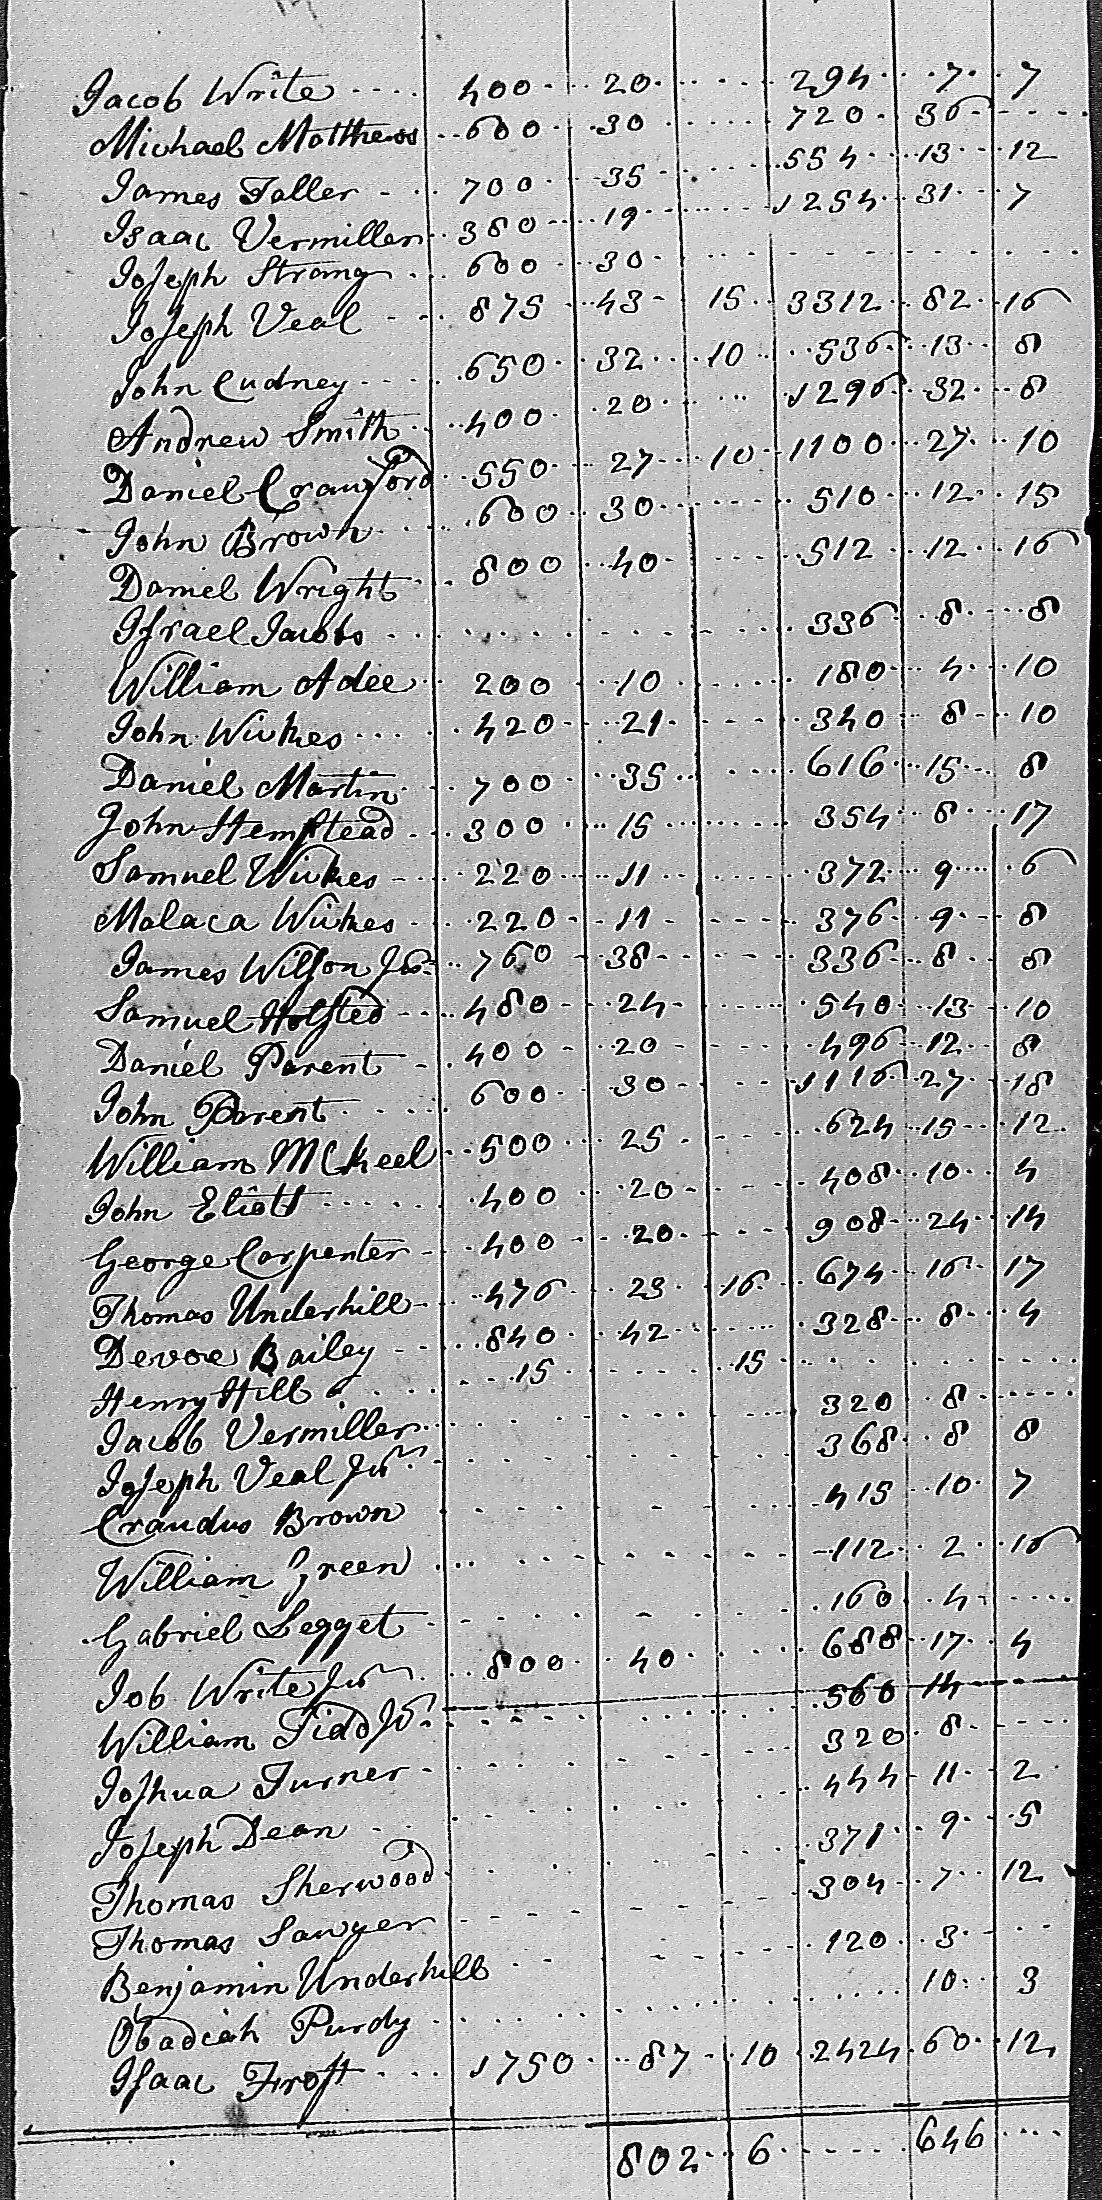 Jacob Write 400 20 294 7 7
Michael Matthews 600 30 720 36
James Faller 700 35 554 13 12
Isaac Vermiller 380 19 1254 31 7
Joseph Strang 600 30
Joseph Veal 875 43 15 3312 82 16
John Cudney 650 32 10 536 13 8
Andrew Smith 400 20 1296 32 8
Daniel Crawford 550 27 10 1100 27 10
John Brown 600 30 510 12 15
Daniel Wright 800 40 512 12 16
Israel Jacobs 336 8 8
William Adee 200 10 180 4 10
John Wickes 420 21 340 8 10
Daniel Martin 700 35 616 15 8
John Hempstead 300 15 354 8 17
Samuel Wickes 220 11 372 9 6
Malaca Wickes 220 11 376 9 8
James Wilson Jur. 760 38 336 8 8
Samuel Holsted 480 24 540 13 10
Daniel Parent 400 20 496 12 8
John Parent 600 30 1116 27 18
William McKeel 500 25 624 15 12
John Eliott 400 20 408 10 4
George Carpenter 400 20 908 24 14
Thomas Underhill 476 23 16 674 16 17
Devoe Bailey 840 42 328 8 4
Henry Hill 15 15
Jacob Vermiller 320 8
Joseph Veal Jur. 368 8 8
Craudus Brown 415 10 7
William Green 112 2 16
Gabriel Legget 160 4
Job Write Jur 800 40 688 17 4
William Fidd Jr. 560 14
Joshua Turner 320 8
Joseph Dean 444 11 2
Thomas Sherwood 371 9 5
Thomas Sawyer 304 7 12
Benjamin Underhill 120 3
Obadiah Purdy 10 3
Isaac Frost 1750 87 10 2424 60 12
802 6 646